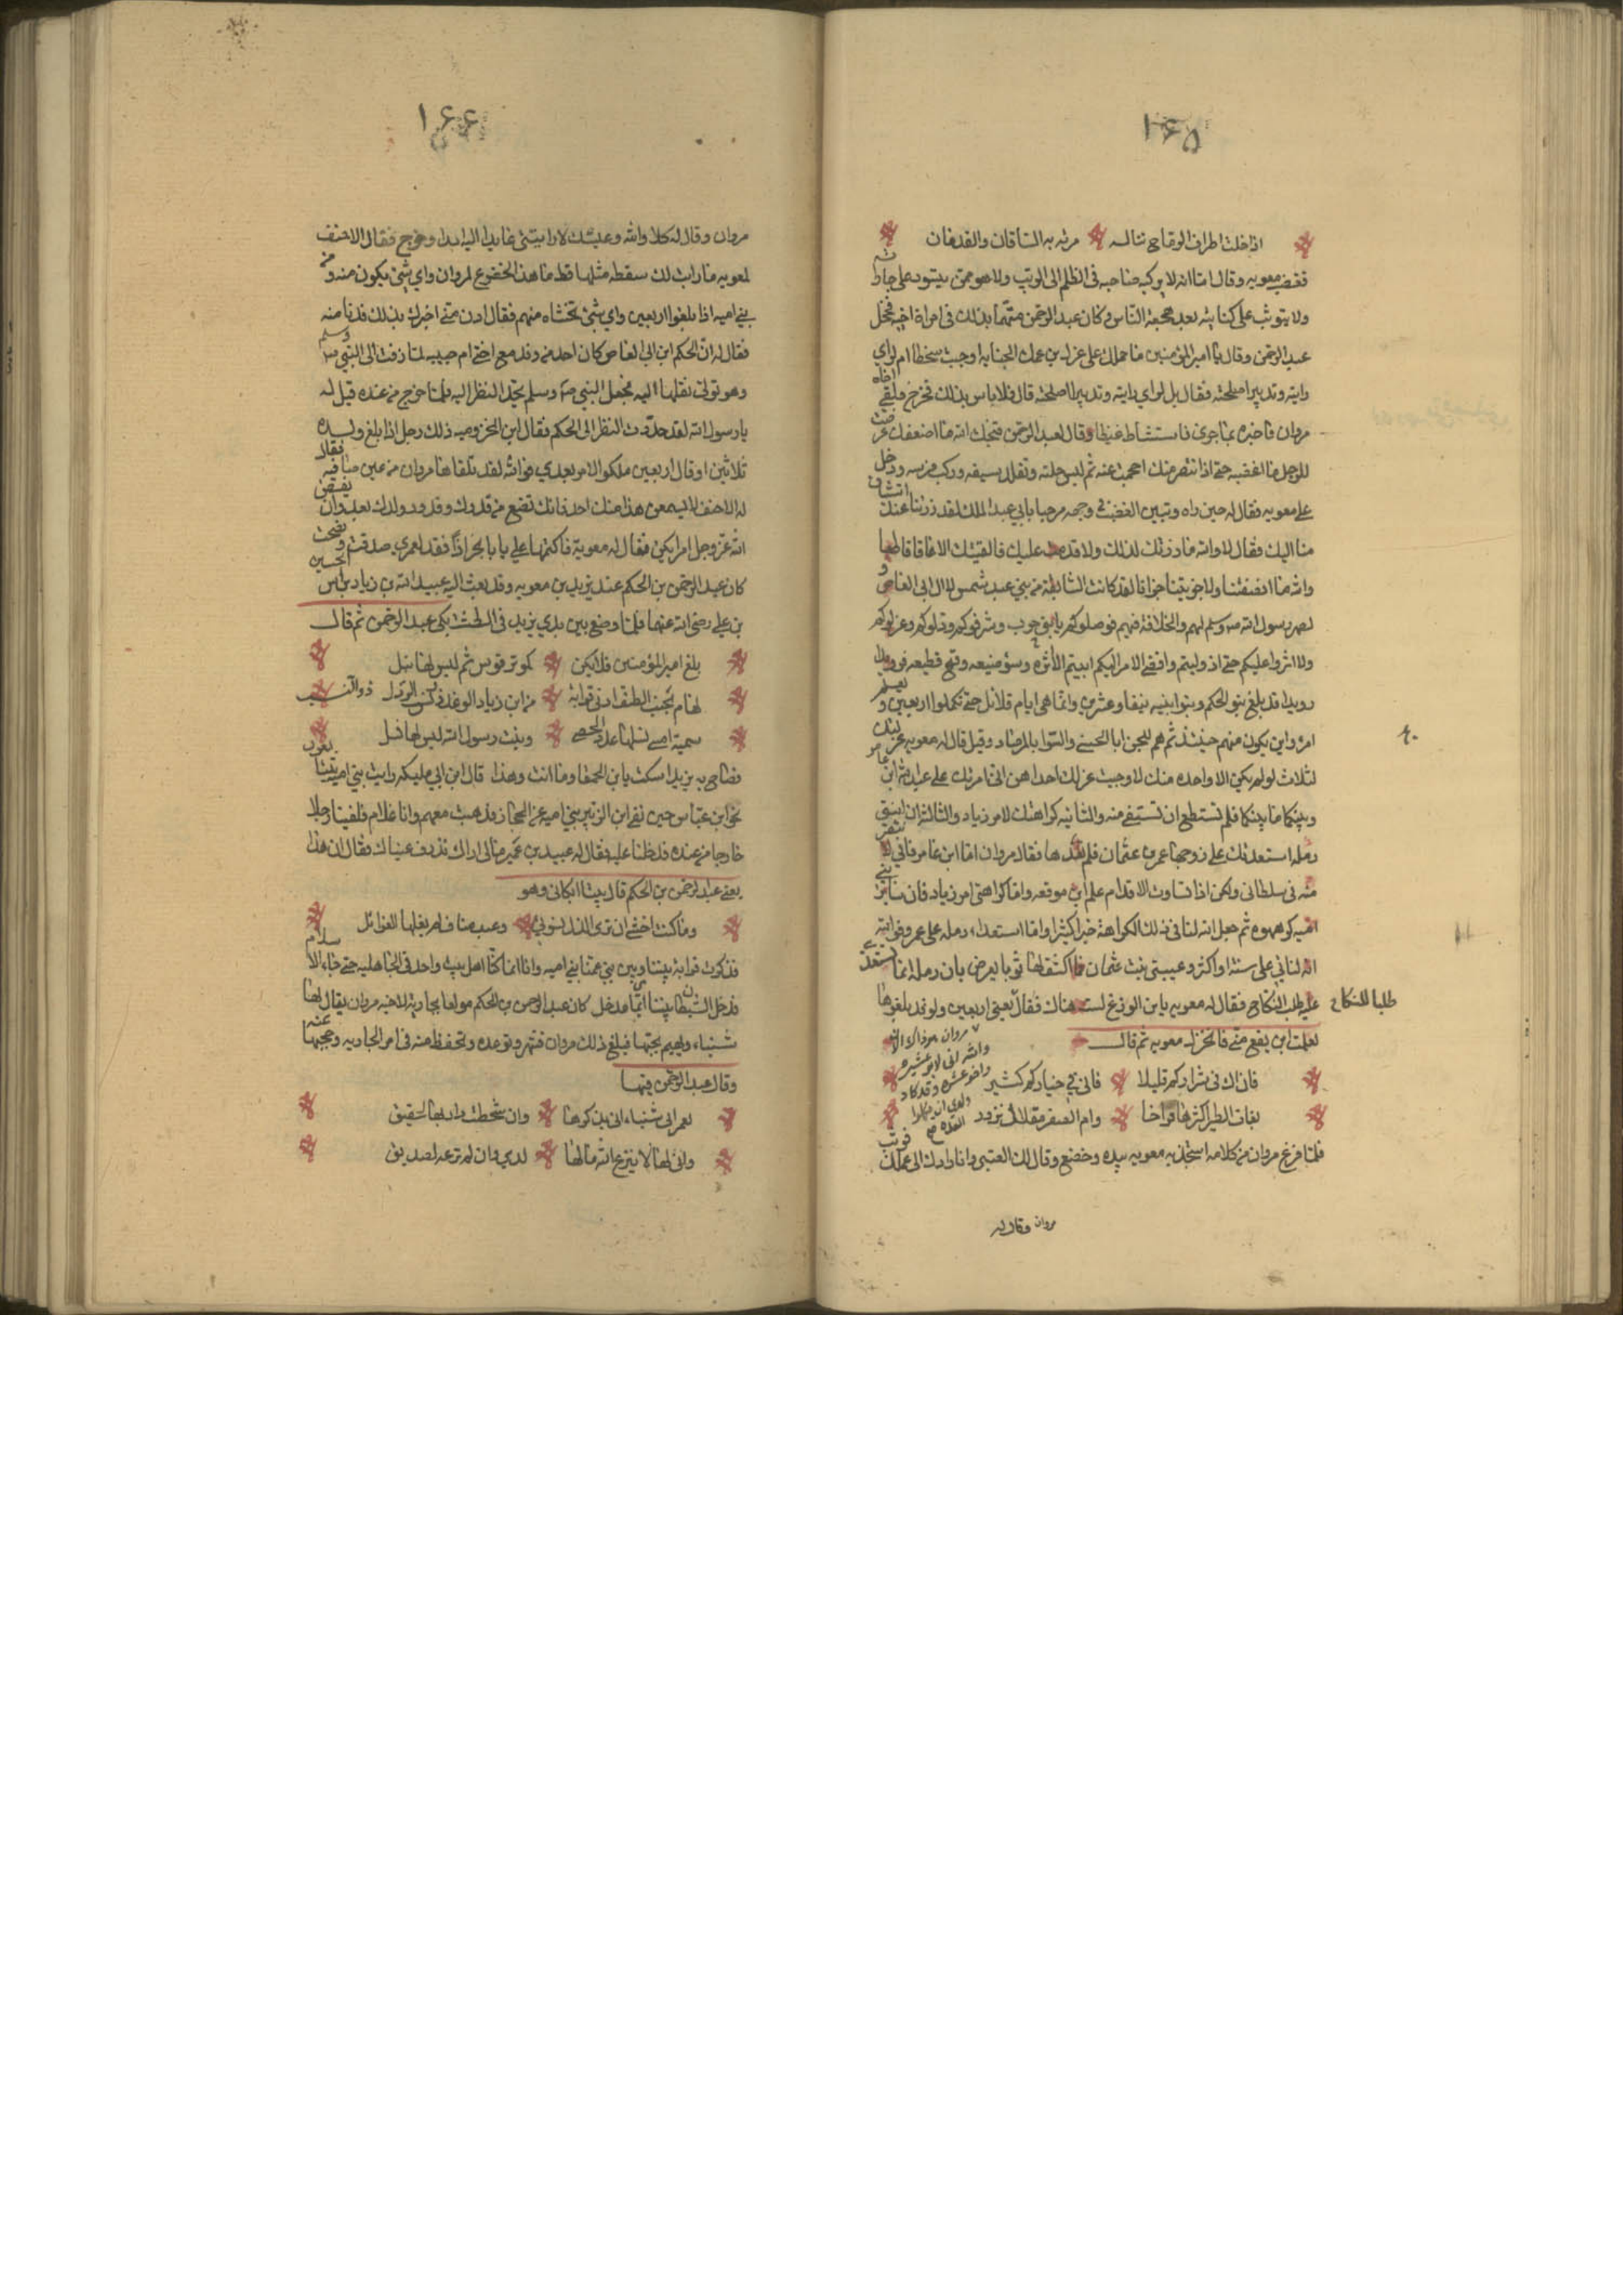 ١٦٥
اذا خلت اطراف الوقاح تناله مرته به الساقان والقدمان
فغضب معويه وقال اما انه لا يركب صاحبه فى الظلم الى الريب ولا هو ممن يتسور على جاراته
ولا يتوثب على كنائنه بعد هجعة الناس وكان عبد الرحمن متهما بذلك فى امراة اخيه فخجل
عبد الرحمن وقال يا امير المؤمنين ما حملك على عزل ابن عمك الجناية اوجبت سخطا ام لراي
رايته وتدبير اصلحته فقال بل لراي رايته وتدبير اصلحته قال فلا باس بذلك فخرج فلقي اخاه
مروان فاخبره بما جرى فاستشاط غيظا وقال لعبد الرحمن قبحك الله ما اضعفك عرضت
للرجل بما اغضبه حتى اذا انتصر منك احجمت عنه ثم لبس حلته وتقلد بسيفه وركب فرسه ودخل
على معويه فقال له حين راه وتبين الغضب فى وجهه مرحبا بابي عبد الملك لقد زرتنا عند اشتياق
منا اليك فقال لا والله ما زرتك لذلك ولا قدمت عليك فالفيتك الا عاقا قاطعا
والله ما انصفتنا ولا جزيتنا جزانا لقد كانت السابقة من بني عبد شمس لال ابي العاص و
لصهر رسول الله صم وسلم لهم والخلافة فيهم فوصلوكم يا بني حرب وشرفوكم وولوكم وعزلوكم
ولا اثروا عليكم حتى اذ وليتم وافضى الامر اليكم ابيتم الا اثره وسؤ صنيعه وقبح قطيعه فرويدا
رويدا قد بلغ بنو الحكم وبنو ابنيه نيفا وعشرين وانما هى ايام قلائل حتى تكملوا اربعين ويعلم
امرؤ اين يكون منهم حينئذ ثم هم للجزا بالحسنى والسوا بالمرصاد وقيل قال له معويه عزلتك
لثلاث لو لم يكن الا واحده منك لاوجبت عزلك احداهن انى امرتك على عبد الله ابن عامر
وبينكما ما بينكما فلم تستطع ان تستشفى منه والثانيه كراهتك لامر زياد والثالثه ان ابنتى
رمله استعدتك على زوجها عمرو بن عثمان فلم تعدها فقال مروان اما ابن عامر فانى لا انتصر
منه فى سلطانى ولكن اذا تساوت الاقدام علم اين موقعه واما كراهتى امر زياد فان سائر بني
اميه كرهوه ثم جعل الله لنا فى ذلك الكراهة خيرا كثيرا واما استعداء رمله على عمرو فوالله
انه لتاتي على سنة او اكثر وعندي بنت عثمان فما اكشف لها ثوبا يعرض بان رمله انما تستعدي
عليه طلب النكاح فقال له معويه يا ابن الوزغ لست هناك فقال يعنى اربعين ولو قد بلغوها
طلبا للنكاح
لعلمت اين يقع منى فانخزل معويه ثم قال
مروان هو ذاك الان
والله انى لابو عشره
واخو عشره وقد كاد
ولدي ان يكملوا
العده صح
فان اك فى شراركم قليلا فانى فى خياركم كثير
بغاث الطير اكثرها فراخا وام الصقر مقلات نزور
فلما فرغ مروان من كلامه استخذى به معويه بيده وخضع وقال لك العتبى وانا رادك الى عملك فوثب
مروان وقال له
١٦٦
مروان وقال له كلا والله وعيشك لا رايتنى عايدا اليه ابدا وخرج فقال الاحنف
لمعويه ما رايت لك سقطه مثلها قط ما هذا الخضوع لمروان واي شئ يكون منه ومن
بني اميه اذا بلغوا اربعين واي شئ تخشاه منهم فقال ادن منى اخبرك بذلك فدنا منه
فقال له ان الحكم ابن ابي العاص كان احد من وفد مع اختى ام حبيبه لما زفت الى النبي صم وسلم
وهو تولى نقلها اليه فجعل النبي صم وسلم يحد النظر اليه فلما خرج من عنده قيل له
يا رسول الله لقد حددت النظر الى الحكم فقال ابن المخزوميه ذلك رجل اذا بلغ ولده
ثلاثين او قال اربعين ملكوا الامر بعدي فوالله لقد تلقاها مروان من عين صافيه فقال
له الاحنف لا يسمعن هذا منك احد فانك تضع من قدرك وقدر ولدك بعدك وان يقض
الله عز وجل امرا يكن فقال له معوية فاكتمها علي يا ابا بحر اذا فقد لعمري صدقت ونصحت
كان عبد الرحمن بن الحكم عند يزيد بن معويه وقد بعث اليه عبيد الله بن زياد براس الحسين
بن علي رضى الله عنهما فلما وضع بين يدي يزيد فى الطشت بكى عبد الرحمن ثم قال
بلغ امير المؤمنين فلا يكن كموتر قوس ثم ليس لها نبل
لهام بجنب الطف ادنى قرابة من ابن زياد الوغد ذي الحسب الرذل
سمية امسى نسلها عدد الحصى وبنت رسول الله ليس لها نسل
فصاح به يزيد اسكت يا ابن الحمقا وما انت وهذا قال ابن ابي مليكه رايت بني اميه يتبعون
نحو ابن عباس حين نفى ابن الزبير بني اميه عن الحجاز فذهبت معهم وانا غلام فلقينا رجلا
خارجا من عنده فدخلنا عليه فقال له عبيد بن عمير مالى اراك تذرف عيناك فقال ان هذا
يعنى عبد الرحمن بن الحكم قال بيتا ابكانى وهو
وما كنت اخشى ان ترى الذل نسوتي وعبد مناف لم يغلها الغوائل
فذكرت قرابة بيننا وبين بني عمنا بني اميه وانا انما كنا اهل بيت واحد فى الجاهليه حتى جاء الاسلام
فدخل الشيطان بيننا ايما مدخل كان عبد الرحمن بن الحكم مولعا بجارية لاخيه مروان يقال لها
شنباء ويهيم بحبها فبلغ ذلك مروان فشهره وتوعده وتحفظ منه فى امر الجاريه وحجبها عنه
وقال عبد الرحمن فيها
لعمر ابى شنباء انى بذكرها وان شحطت دار بها لحقيق
وانى لها لا ينزع الله مالها لدي وان لم ترعه لصديق